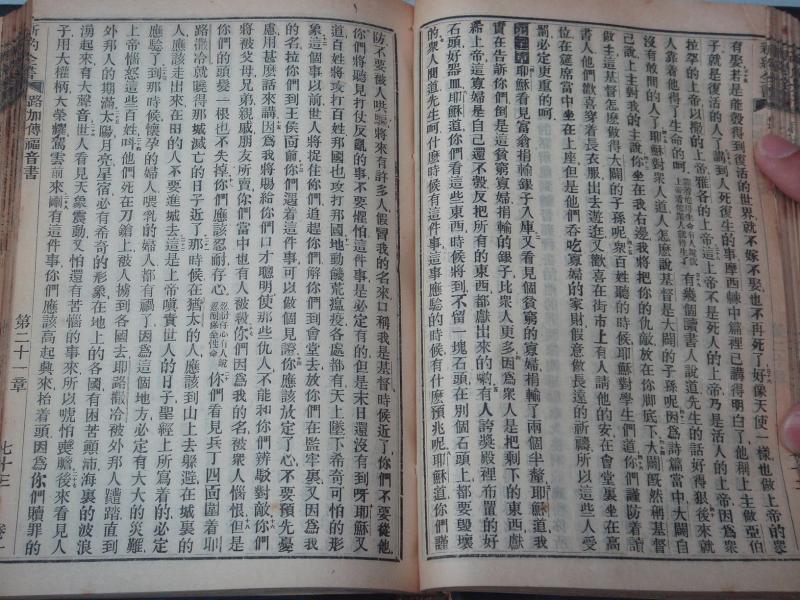 新約全書
有娶若是能彀得到復活的世界就不嫁不娶也不再死了好像天使一樣也做上帝的眾
子就是復活的人了講到人死復生的事摩西棘中篇裡已講得明白了他稱上主做亞伯
拉罕的上帝以撒的上帝雅各的上帝這上帝不是死人的上帝乃是活人的上帝因為眾
人靠着他得了生命的呵 有幾個讀書人說道先生的話好得狠後來就
沒有敢問的人了耶穌對眾人道人怎麼說基督是大闢的子孫呢因為詩篇當中大闢自
己說上主對我的主說你坐在我右邊我將把你的仇敵放在你腳底下大闢既然稱基督
做主這基督怎麼做得大闢的子孫呢眾百姓聽的時候耶穌對學生們道你們謹防着讀
書人他們歡喜穿着長衣服出去遊逛又歡喜在街市上有人請他的安在會堂裏坐在高
位在筵席當中坐在上座但是他們吞吃寡婦的家財假意做長遠的祈禱所以這些人受
罰必定更重的呵
耶穌看見富翁捐輸銀子入庫又看見個貧窮的寡婦捐輸了兩個半釐耶穌道我
實在告訴你們倒是這貧窮寡婦捐輸的銀子比眾人更多因為眾人是把剩下的東西獻
給上帝這寡婦是自己還不彀反把所有的東西都獻出來的喲有人誇獎殿裡布置的好
石頭好器皿耶穌道你們看這些東西時候將到不留一塊石頭在別個石頭上都要毀壞
的眾人問道先生呵什麼時候有這件事這事應驗的時候有什麼預兆呢耶穌道你們謹
防不要被人哄騙將來有許多人假冒我的名來口稱我是基督時候近了你們不要從他
你們將聽見打仗反亂的事不要擢怕這件事是必定有的但是末日還沒有到呀耶穌又
道百姓將攻打百姓那國也攻打那國地動饑荒瘟疫各處都有天上墜下希奇可怕的形
象這個事以前世人將捉住你們追趕你們解你們到會堂去放你們在監牢裏又因為我
的名拉你們到王侯面前你們遇着這件事可以做個見證你們應該放定了心不要預先憂
慮用甚麼話來講因為我將賜給你們口才聰明使那些仇人不能和你們辨駁對敵你們
將被父母兄弟親戚朋友所賣你們當中也有人被殺你們因為我的名被眾人惱恨但是
你們的頭髮一根也不失掉你們應該忍耐存心 你們看見兵丁四面圍着耶
路撒冷就曉得那城滅亡的日子近了那時候在猶太的人應該到山上去躲避在城裏的
人應該走出來在田的人不要進城去這是上帝嗔責世人的日子聖經上所寫着的必定
應驗了到那時候懷孕的婦人喂乳的婦人都有禍了因為這個地方必定有大大的災難
上帝惱怒這些百姓呌他們死在刀鎗上被人擄到各國去耶路撒冷被外邦人蹧踏直到
外邦人的期滿太陽月亮星宿必有希奇的形象在地上的各國有困苦顚沛海裏的波浪
湧起來有大聲音世人看見天象震動又怕還有苦惱的事來所以唬怕喪膽後來看見人
子用大權柄大榮耀駕雲前來纔有這件事你們應該高起興來抬着頭因為你們贖罪的
新約全書
路加傳福音書
第二十一章
七十三